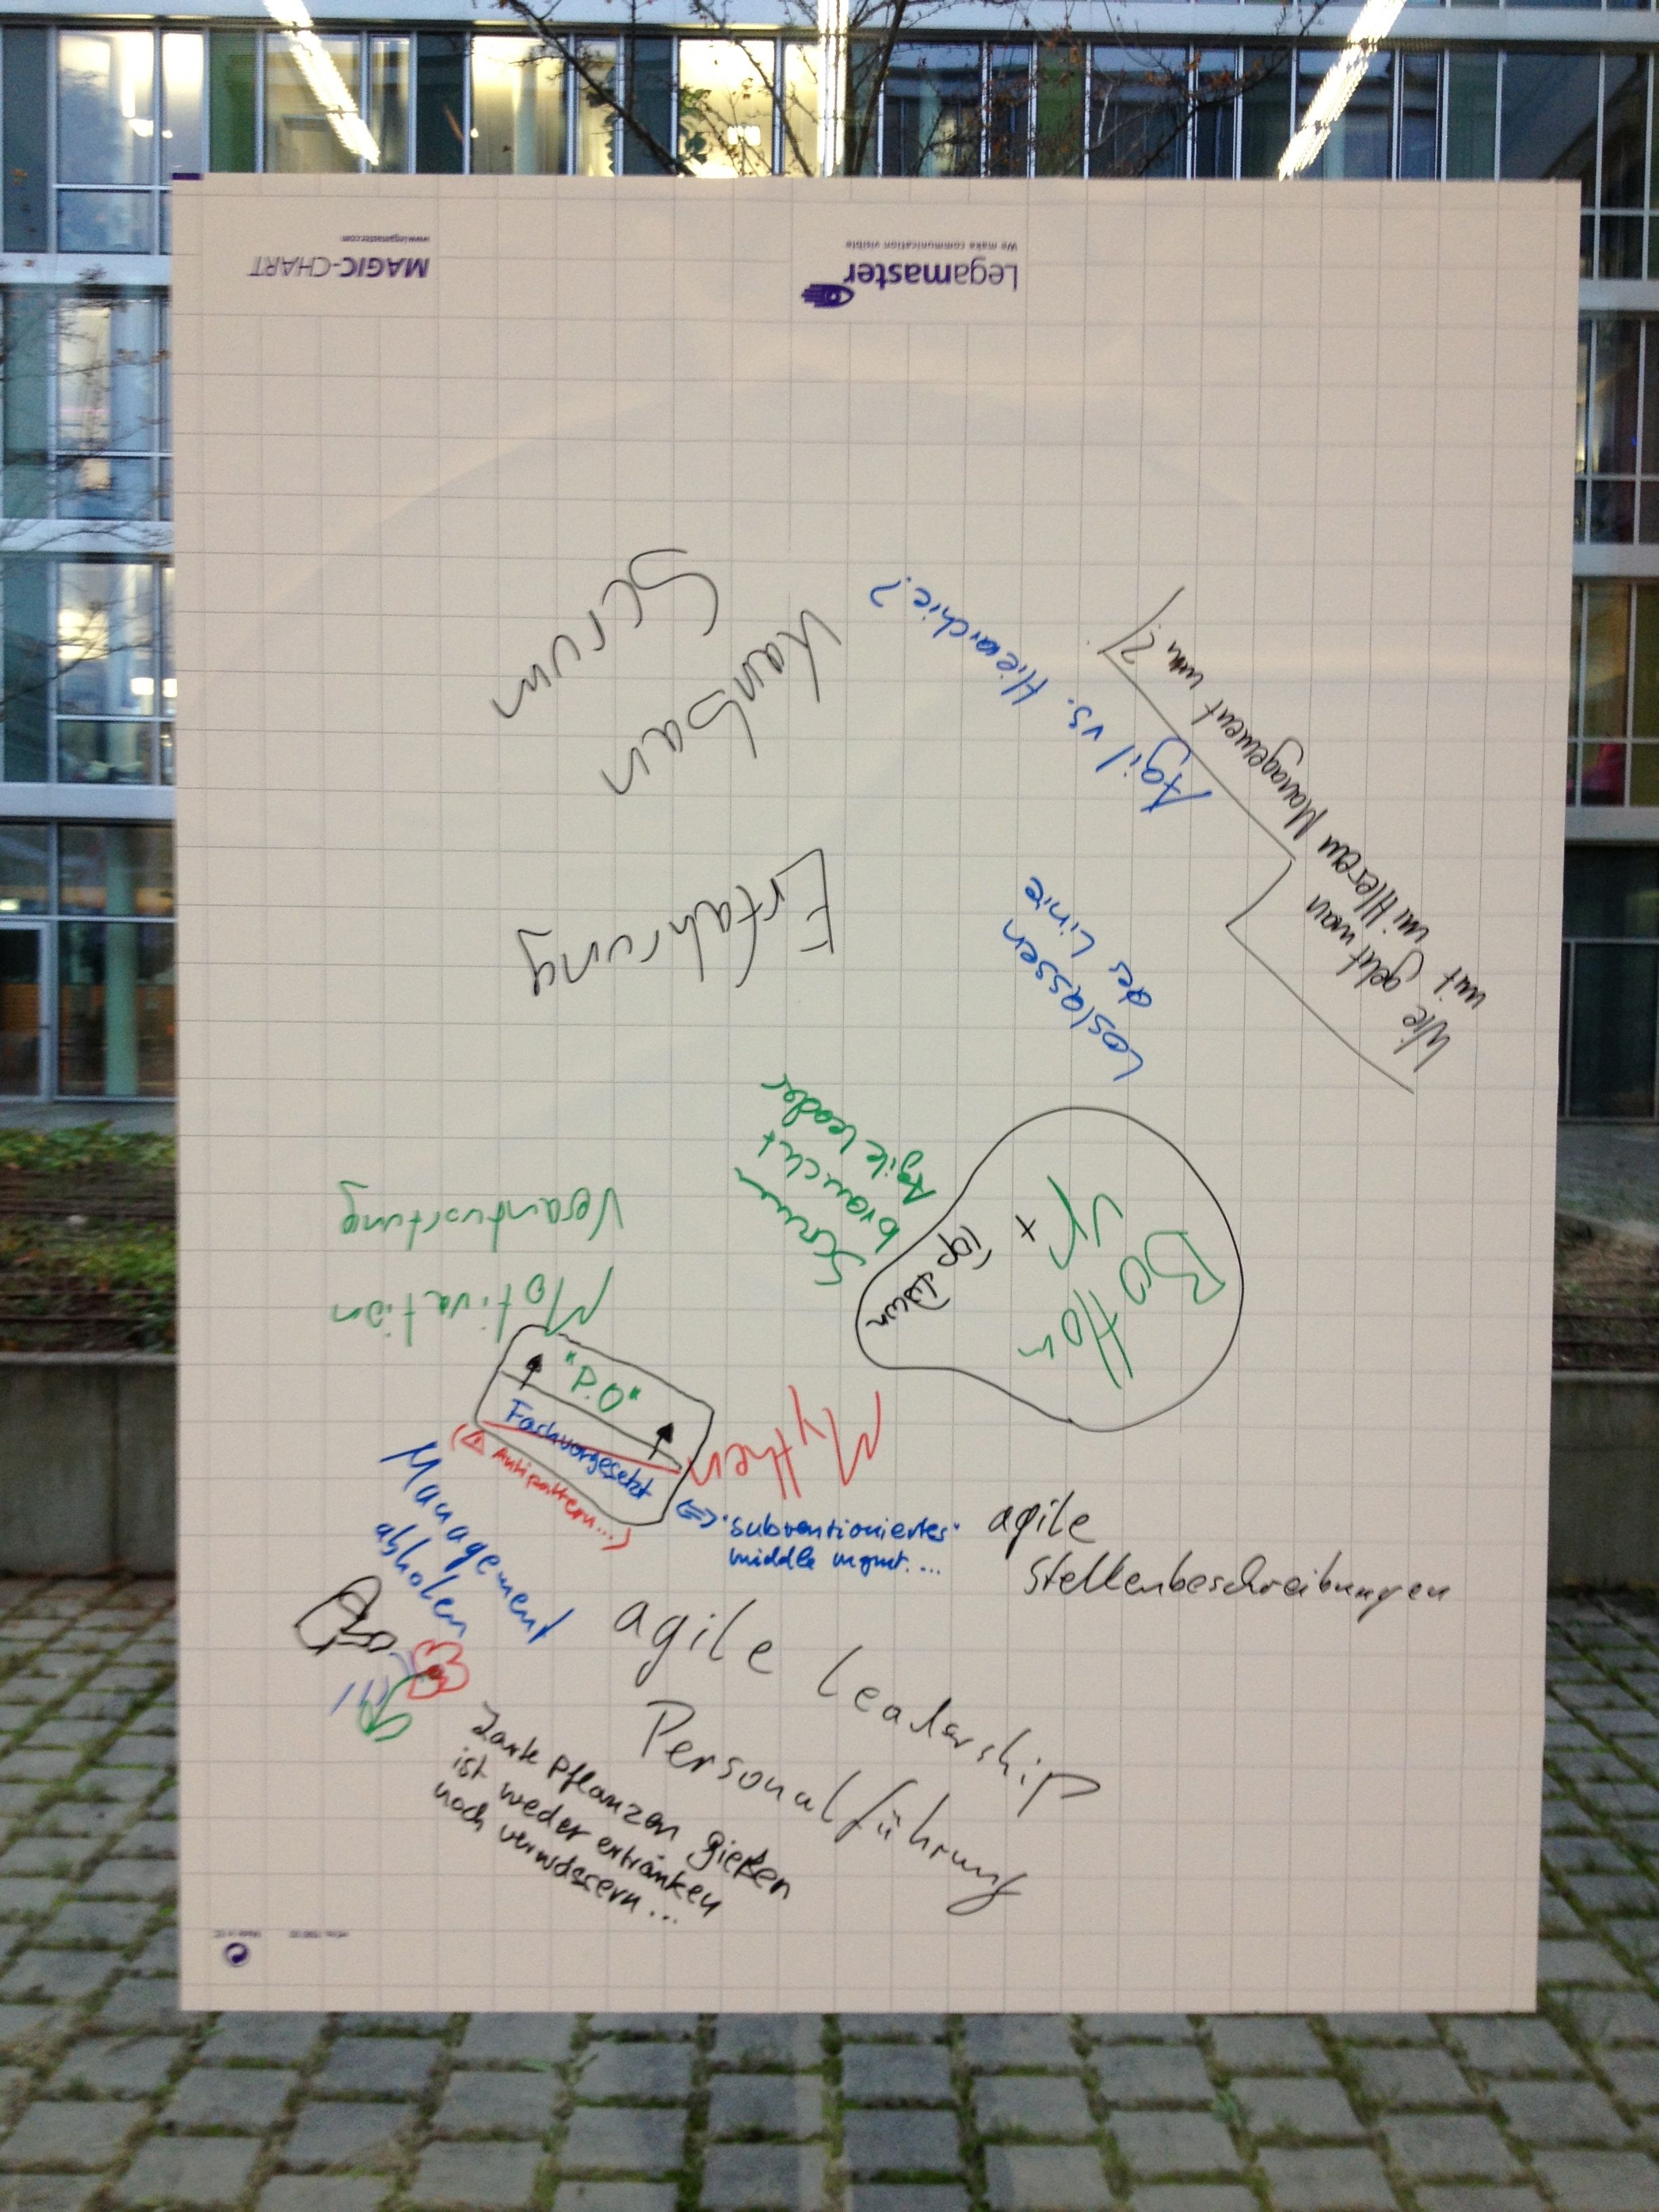 www.legamaster.com
MAGIC-CHART
We make communication visible
Legamaster
Scrum
Kanban
Agil vs. Hierarchie?
Wie geht man
mit mittlerem Management um?
Erfahrung
Loslassen
der Linie
Scrum
braucht
Agile Leader
Bottom
up
+
Top Down
Verantwortung
Motivation
"P.O"
Fachvorgesetzt
(⚠ Antipattern...)
Mythen
⇔ "subventioniertes"
middle mgmt. ...
Management
abholen
agile
Stellenbeschreibungen
agile Leadership
Personalführung
Zarte Pflanzen gießen
ist weder ertränken
noch verwässern...